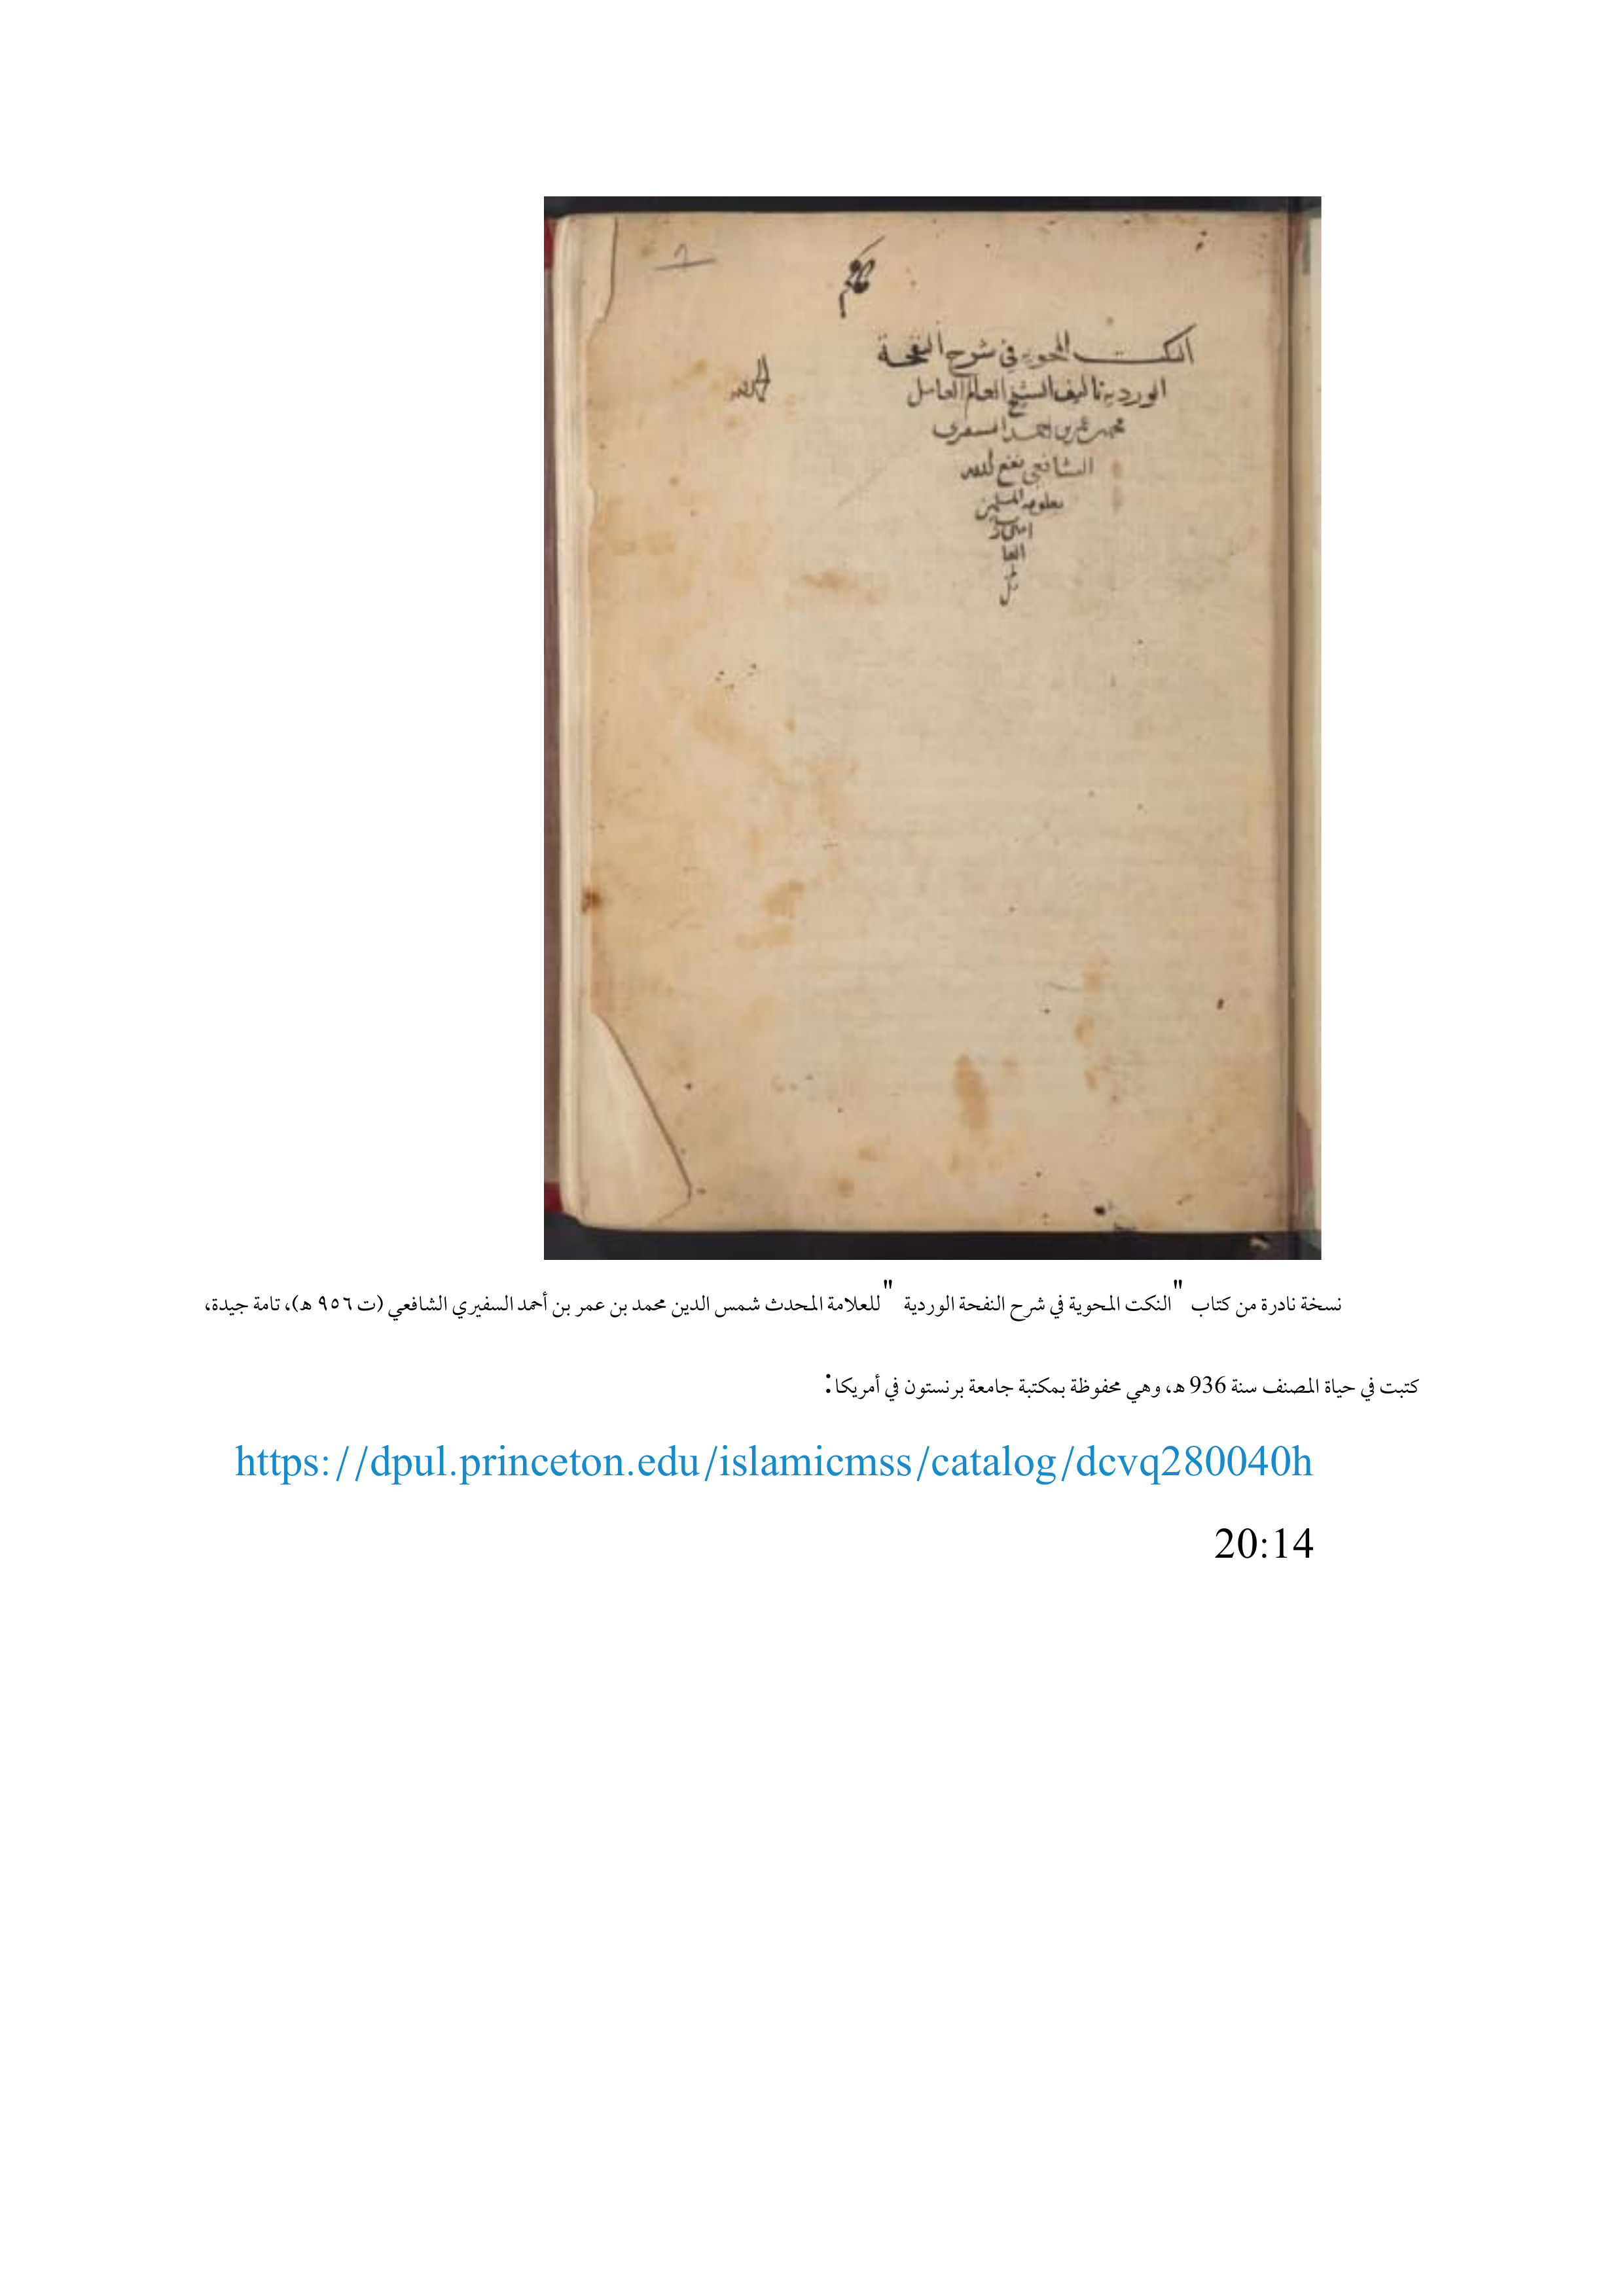 النكت المحويه في شرح النفحة
الورديه تاليف الشيخ العالم العامل
محمد بن عمر بن احمد السفيري
الشافعي نفع الله
بعلومه المسلمين
امين
العا
نسخة نادرة من كتاب "النكت المحوية في شرح النفحة الوردية" للعلامة المحدث شمس الدين محمد بن عمر بن أحمد السفيري الشافعي (ت ٩٥٦ هـ)، تامة جيدة،
كتبت في حياة المصنف سنة 936 هـ، وهي محفوظة بمكتبة جامعة برنستون في أمريكا:
https://dpul.princeton.edu/islamicmss/catalog/dcvq280040h
20:14